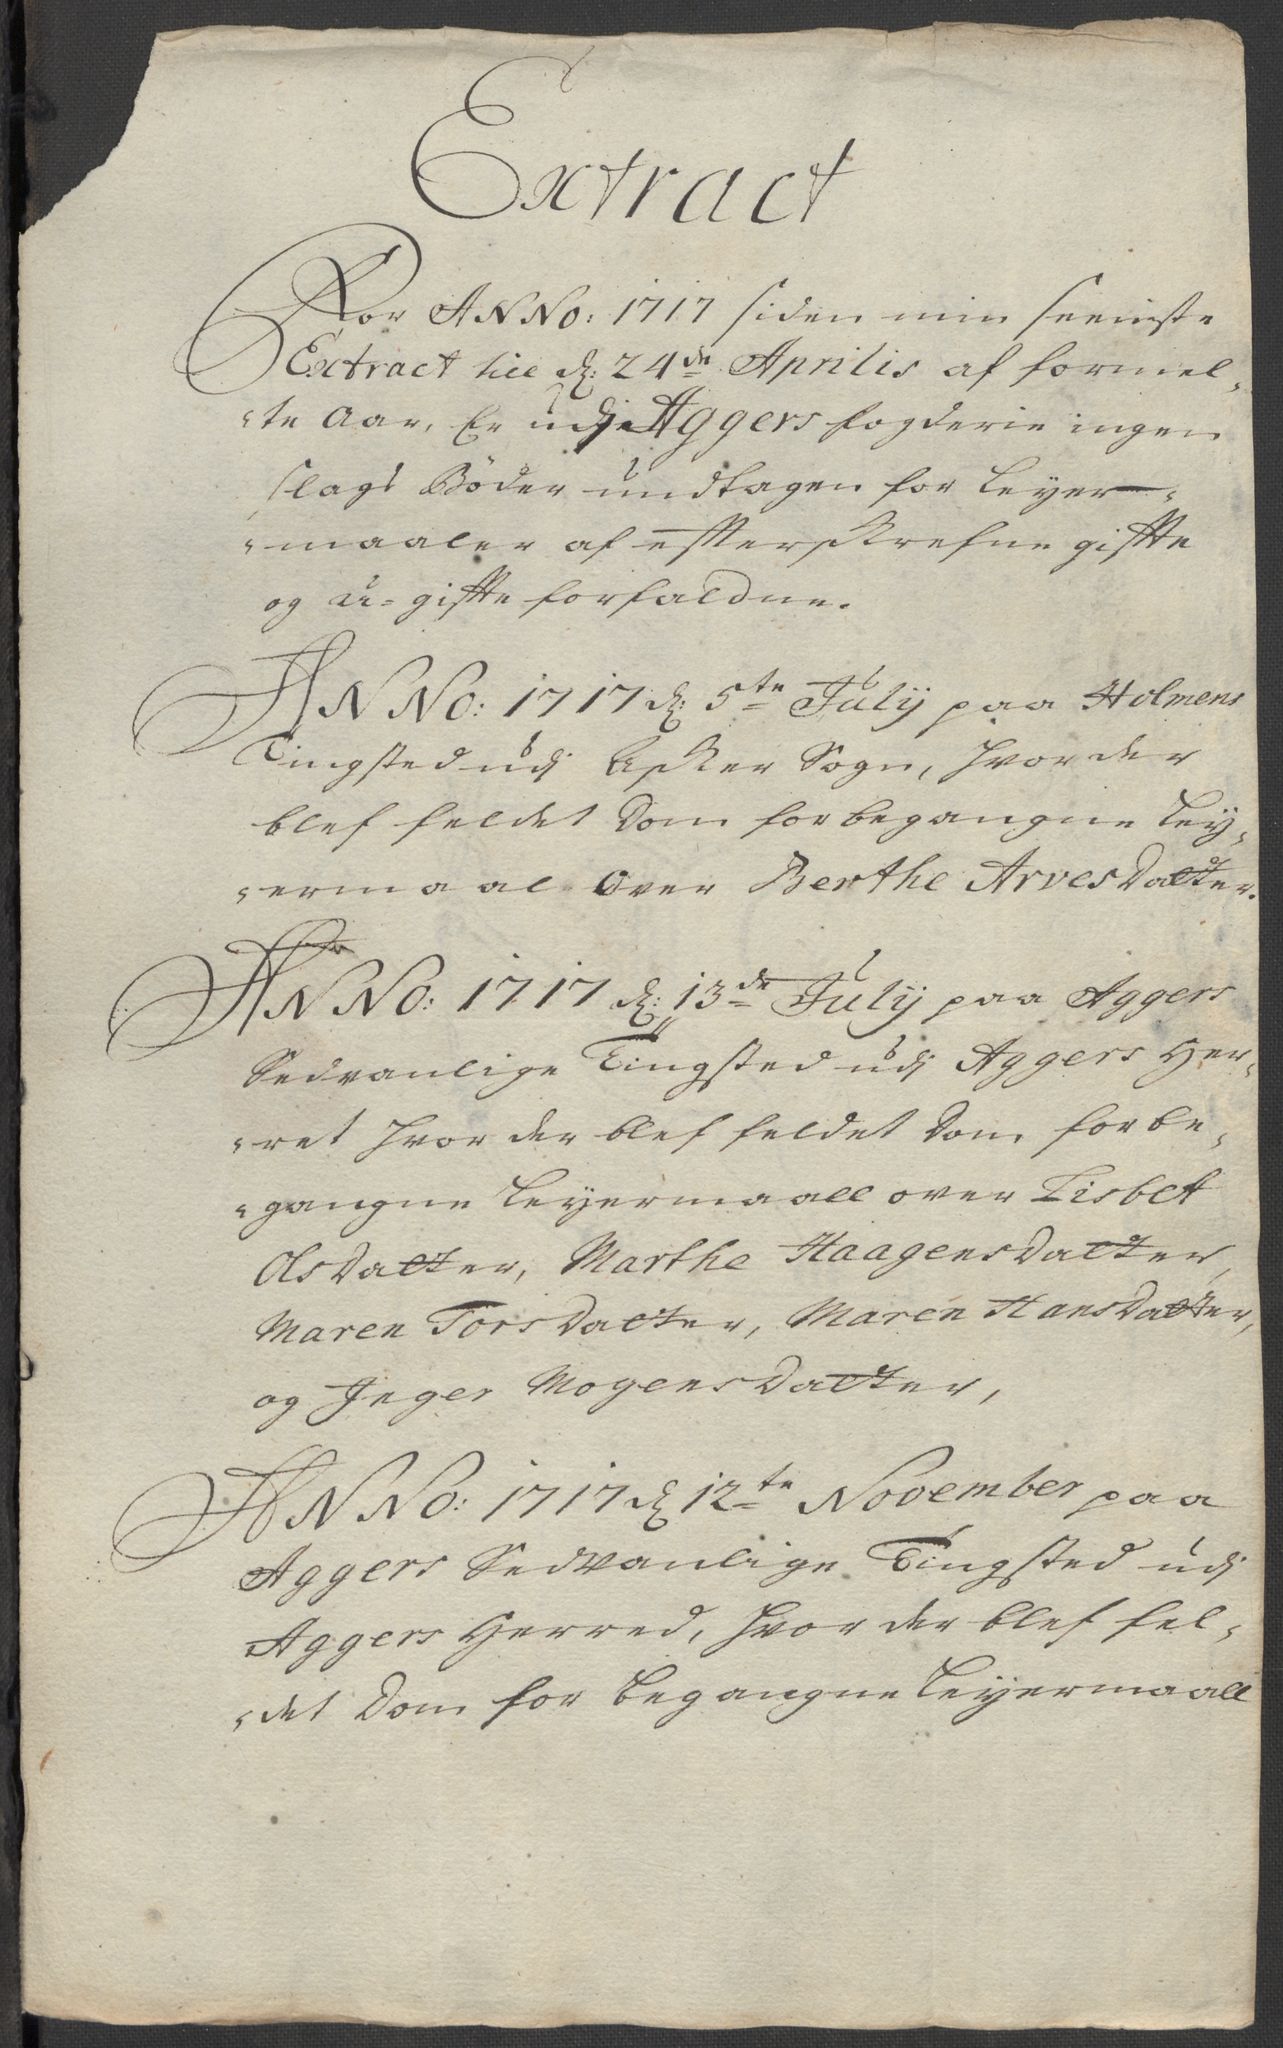 Extract
For ANNO: 1717 siden min seeniste
Extract till d: 24de Aprilis af formel-
-te Aar, Er udj Aggers fogderie ingen
slags Böder undtagen for Leyer-
-maaler af efterskrefne giffte
og u-giffte forfaldne.
ANNO: 1717 d: 5te July paa Holmens
Tingsted udj Asker Sogn, hvor der
blef feldet Dom for begangne Ley-
-ermaal over Berthe ArvesDatter.
ANNO: 1717 d: 13de July paa Aggers
Sedvanlige Tingsted udj Aggers Her-
-ret hvor der blef feldet Dom for be-
-gangne Leyermaall over Lisbet
OlsDatter, Marthe HaagensDatter,
Maren TorsDatter, Maren HansDatter,
og Inger MogensDatter,
ANNO: 1717 d 12te November paa
Aggers Sedvanlige Tingsted udj
Aggers Herred, hvor der blef fel-
-det Dom for begangne Leyermaall